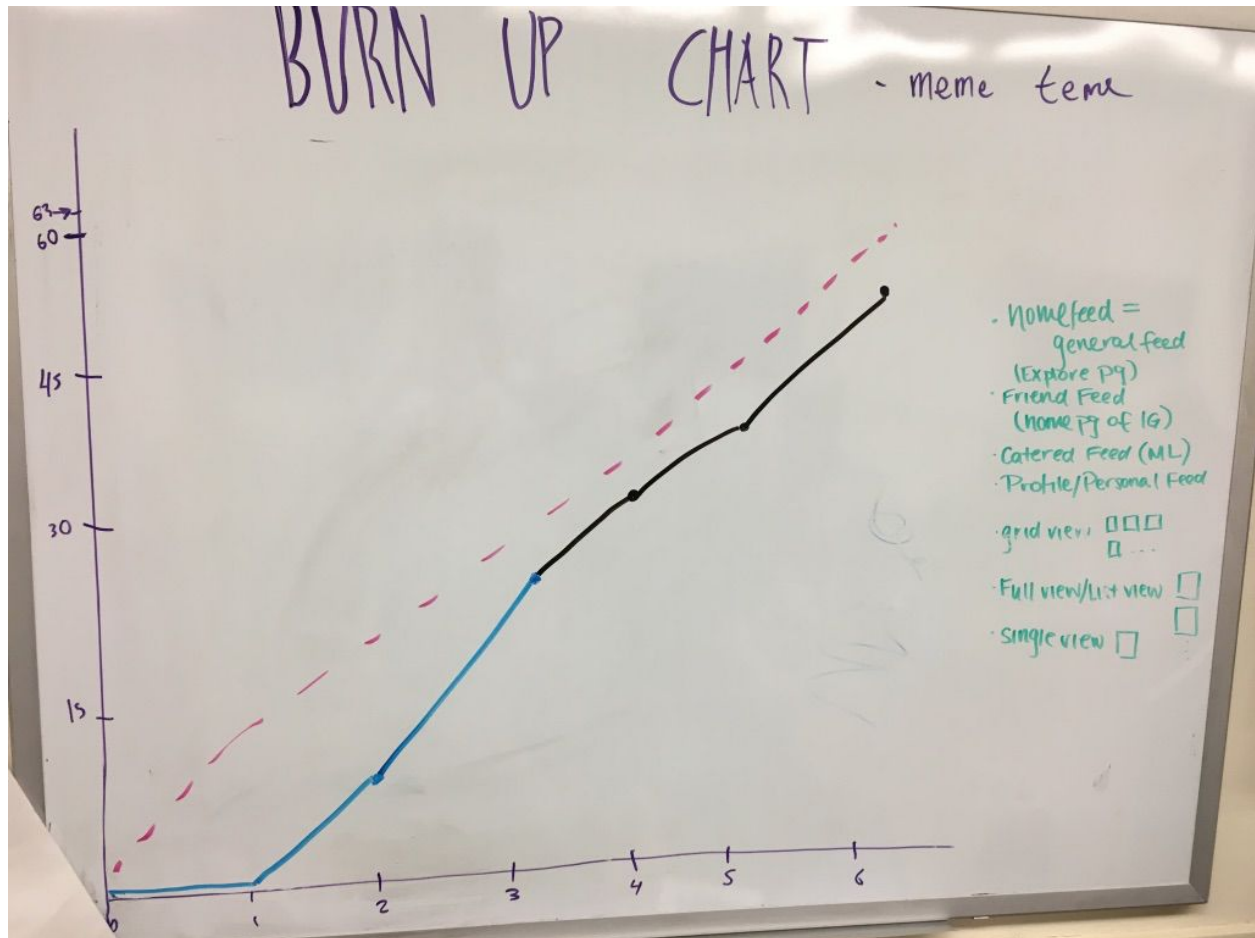 BURN UP CHART - meme teme
63→
60
45
30
15
0
1
2
3
4
5
6
· homefeed =
general feed
(Explore pg)
· Friend Feed
(home pg of IG)
· Catered Feed (ML)
· Profile/Personal Feed
· grid view
· Full view/List view
· single view